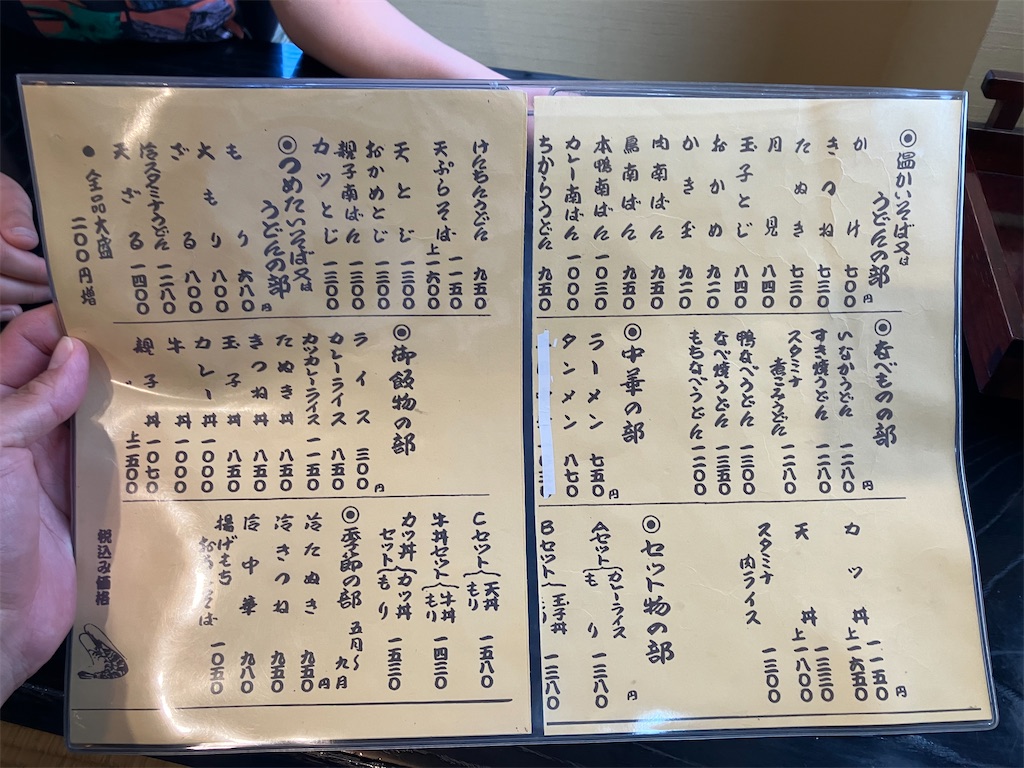 ◉温かいそば又は
うどんの部
かけ 七〇〇円
きつね 七三〇
たぬき 七三〇
月見 八四〇
玉子とじ 八四〇
おかめ 九二〇
かき玉 九二〇
肉南ばん 九五〇
鳥南ばん 九五〇
本鴨南ばん 一〇三〇
カレー南ばん 一〇〇〇
ちからうどん 九五〇
けんちんうどん 九五〇
天ぷらそば 一一五〇
上一六〇〇
天とじ 一二〇〇
おかめとじ 一二〇〇
親子南ばん 一三〇〇
カツとじ 一三〇〇
◉つめたいそば又は
うどんの部
もり 六八〇円
大もり 八〇〇
ざる 八〇〇
冷スタミナうどん 一二八〇
天ざる 一四〇〇
●全品大盛
二〇〇円増
◉なべものの部
いなかうどん 一二八〇円
すき焼うどん 一二八〇
スタミナ
煮こみうどん 一二八〇
鴨なべうどん 一三〇〇
なべ焼うどん 一三五〇
もちなべうどん 一二〇〇
◉中華の部
ラーメン 七五〇円
タンメン 八七〇
◉御飯物の部
ライス 三〇〇円
カレーライス 八五〇
カツカレーライス 一一五〇
たぬき丼 八五〇
きつね丼 八五〇
玉子丼 八五〇
カレー丼 一〇〇〇
牛丼 一〇〇〇
親子丼 一〇七〇
上一五〇〇
カツ丼 一一五〇円
上一六五〇
天丼 一三三〇
上一八〇〇
スタミナ
肉ライス 一三〇〇
◉セット物の部
円
Aセット{カレーライス
もり 一三八〇
Bセット{玉子丼
一三八〇
Cセット{天丼
もり 一五八〇
牛丼セット{牛丼
もり 一四三〇
カツ丼{カツ丼
セット もり 一五三〇
◉季節の部 五月〜九月
冷たぬき 九五〇円
冷きつね 九五〇
冷中華 九八〇
揚げもち
おろしそば 一〇五〇
税込み価格